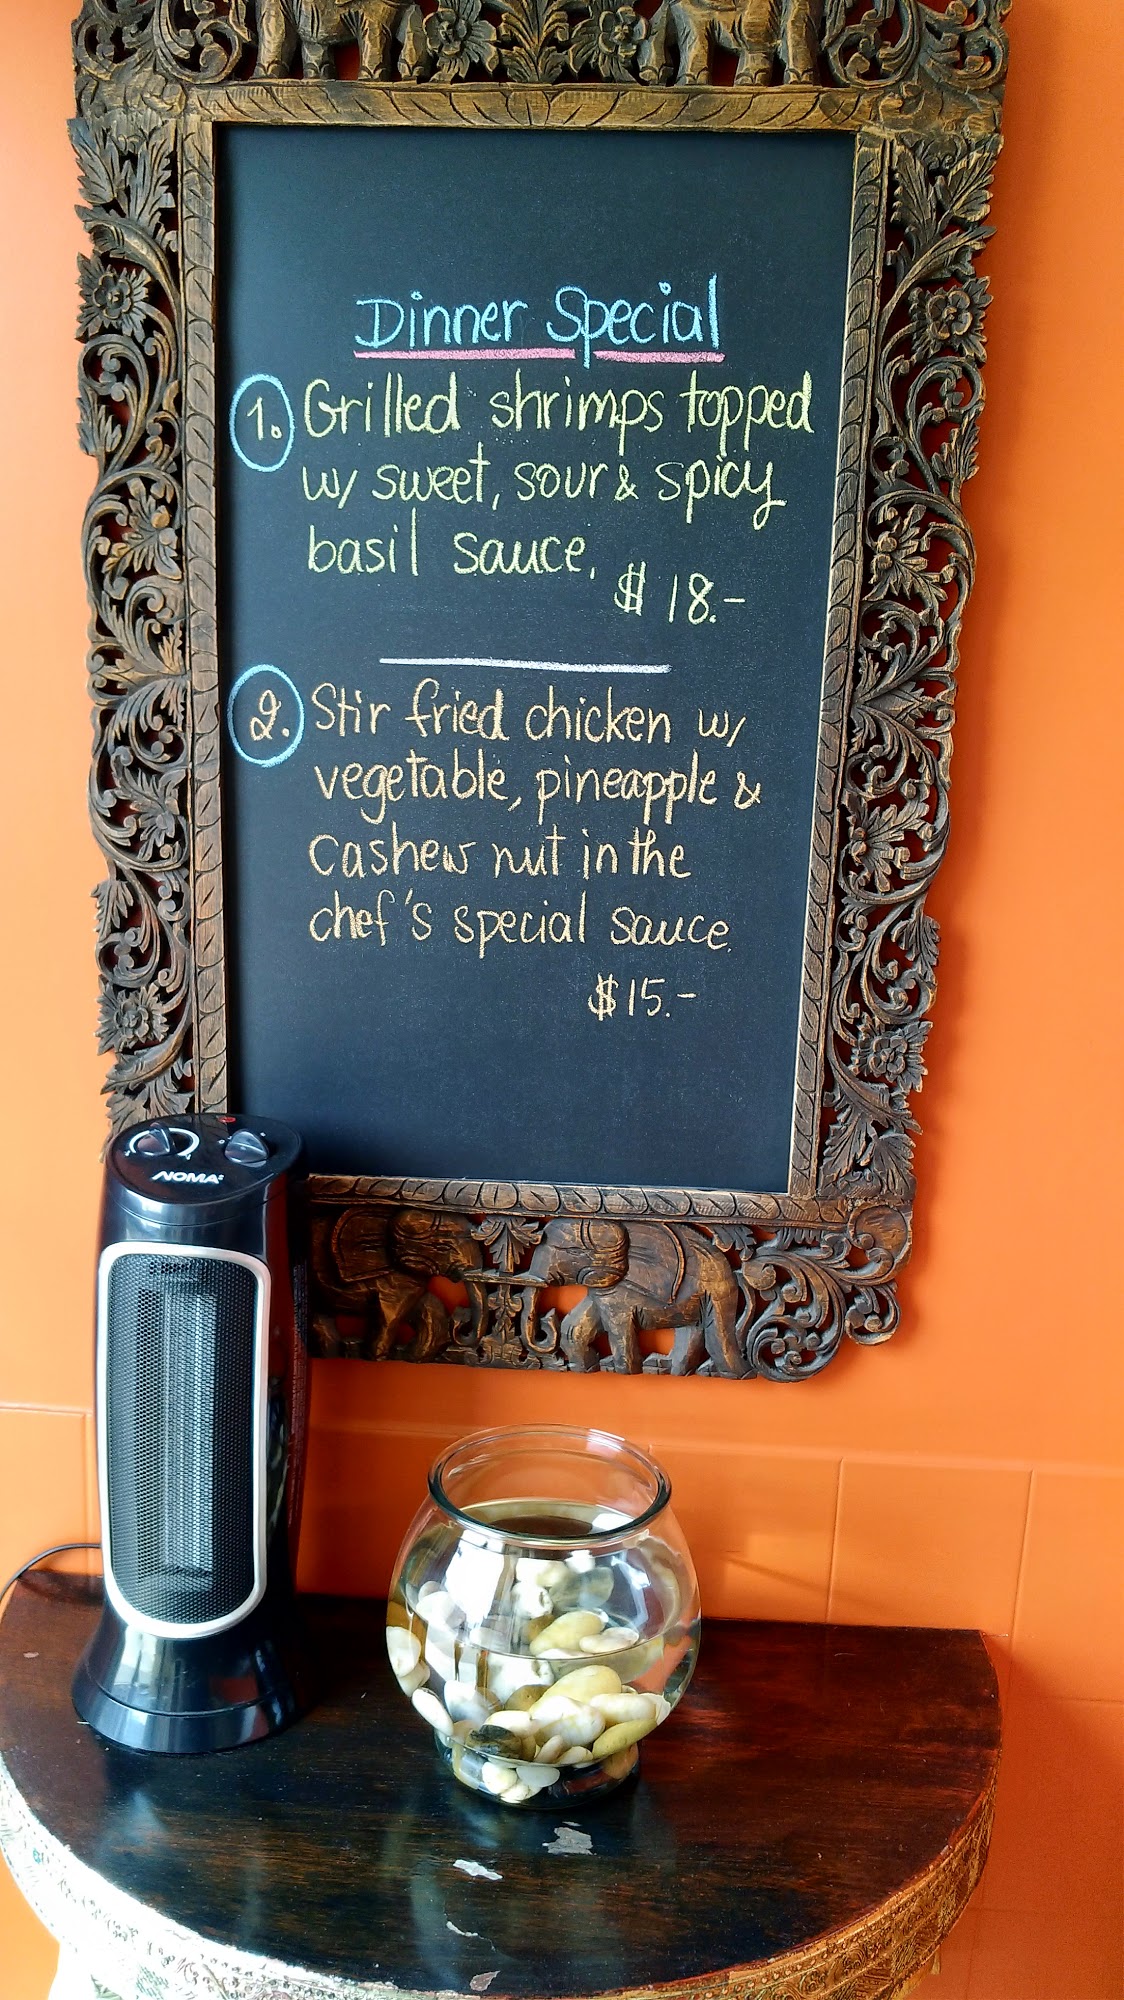 Dinner Special
1. Grilled shrimps topped
w/ sweet, sour & spicy
basil sauce.
$18.-
2. Stir fried chicken w/
vegetable, pineapple &
cashew nut in the
chef's special sauce.
$15.-
NOMA